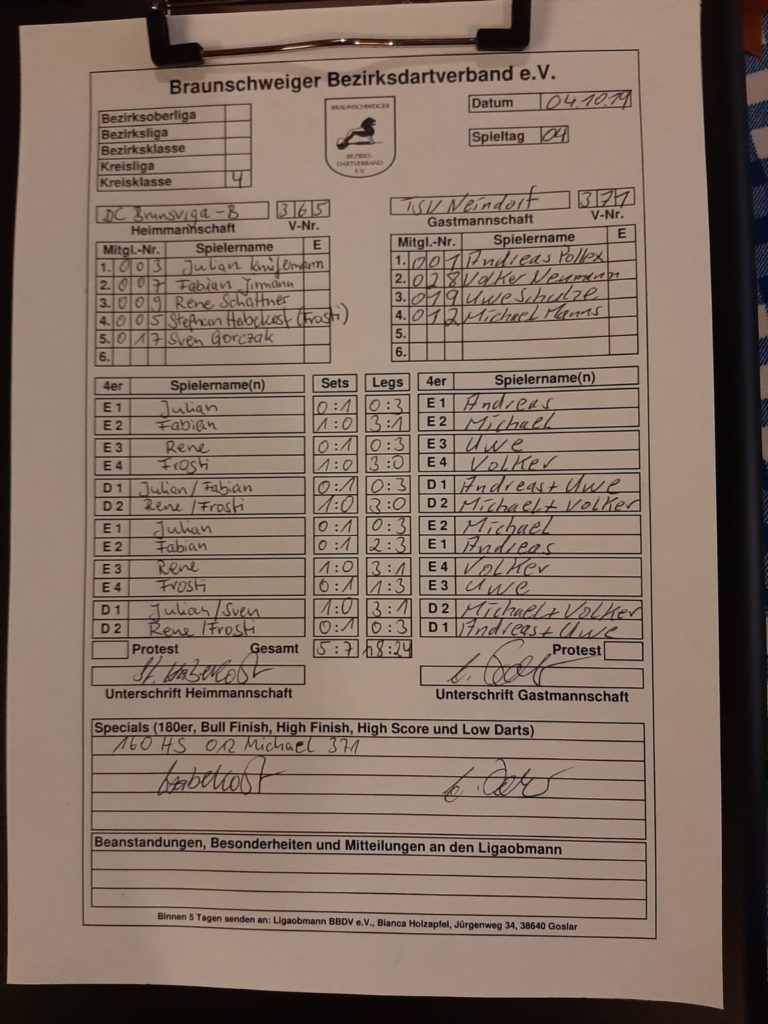 Braunschweiger Bezirksdartverband e.V.
Bezirksoberliga
Bezirksliga
Bezirksklasse
Kreisliga
Kreisklasse 4
BRAUNSCHWEIGER
BEZIRKS-
DARTVERBAND
E.V.
Datum 04.10.19
Spieltag 04
DC Brunsviga-B 365
Heimmannschaft V-Nr.
TSV Neindorf 371
Gastmannschaft V-Nr.
Mitgl.-Nr. Spielername E
1. 003 Julian
2. 007 Fabian
3. 009 Rene Schattner
4. 005 Stephan Habekost (Frosti)
5. 017 Sven Gorczak
6.
Mitgl.-Nr. Spielername E
1. 001 Andreas Pollex
2. 028 Volker Neumann
3. 019 Uwe Schulze
4. 012 Michael Manns
5.
6.
4er Spielername(n) Sets Legs 4er Spielername(n)
E 1 Julian 0:1 0:3 E 1 Andreas
E 2 Fabian 1:0 3:1 E 2 Michael
E 3 Rene 0:1 0:3 E 3 Uwe
E 4 Frosti 1:0 3:0 E 4 Volker
D 1 Julian/Fabian 0:1 0:3 D 1 Andreas + Uwe
D 2 Rene/Frosti 1:0 3:0 D 2 Michael + Volker
E 1 Julian 0:1 0:3 E 2 Michael
E 2 Fabian 0:1 2:3 E 1 Andreas
E 3 Rene 1:0 3:1 E 4 Volker
E 4 Frosti 0:1 1:3 E 3 Uwe
D 1 Julian/Sven 1:0 3:1 D 2 Michael + Volker
D 2 Rene/Frosti 0:1 0:3 D 1 Andreas + Uwe
Protest Gesamt 5:7 18:24 Protest
St. Habekost
Unterschrift Heimmannschaft Unterschrift Gastmannschaft
Specials (180er, Bull Finish, High Finish, High Score und Low Darts)
160 HS 012 Michael 371
Habekost
Beanstandungen, Besonderheiten und Mitteilungen an den Ligaobmann
Binnen 5 Tagen senden an: Ligaobmann BBDV e.V., Bianca Holzapfel, Jürgenweg 34, 38640 Goslar